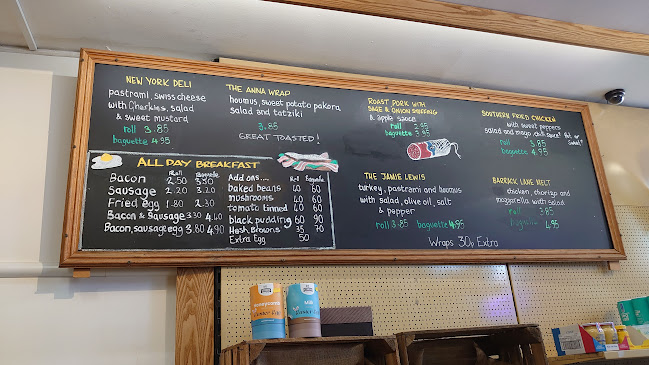 NEW YORK DELI
pastrami, swiss cheese
with Gherkins, salad
& sweet mustard
roll 3.85
baguette 4.95
THE ANNA WRAP
houmus, sweet potato pakora
salad and tatziki
3.85
GREAT TOASTED!
ROAST PORK WITH
SAGE & ONION STUFFING
& apple sauce
roll
baguette 3.95
SOUTHERN FRIED CHICKEN
with sweet peppers
salad and mayo
roll 3.85
baguette 4.95
ALL DAY BREAKFAST
Roll Baguette
Bacon 2.50 3.30
Sausage 2.20 3.20
Fried egg 1.80 2.30
Bacon & Sausage 3.30 4.40
Bacon, sausage, egg 3.80 4.90
Add ons... Roll Baguette
baked beans 40 60
mushrooms 40 60
tomato tinned 40 60
black pudding 60 90
Hash Browns 35 70
Extra Egg 50
THE JAMIE LEWIS
turkey, pastrami and houmus
with salad, olive oil, salt
& pepper
roll 3.85 baguette 4.95
BARRACK LANE MELT
chicken, chorizo and
mozzarella with salad
roll 3.85
4.95
Wraps 30p Extra